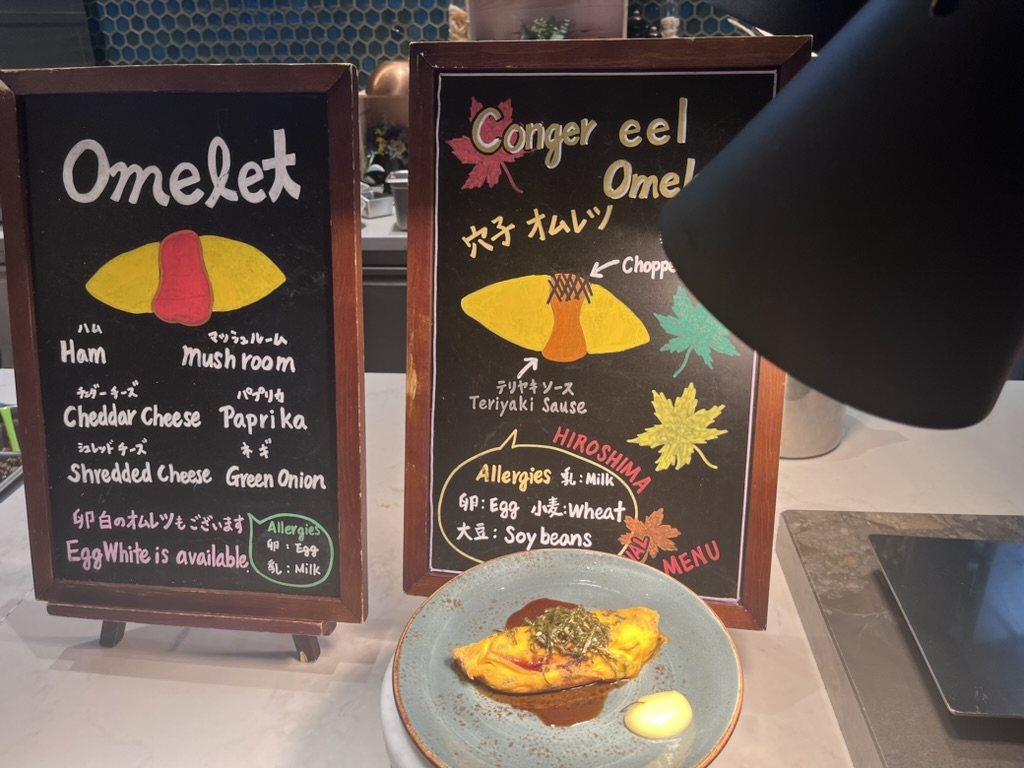 Omelet
ハム
Ham
マッシュルーム
mushroom
チェダーチーズ
Cheddar Cheese
パプリカ
Paprika
シュレッドチーズ
Shredded Cheese
ネギ
Green Onion
卵白のオムレツもございます
Egg White is available.
Allergies
卵：Egg
乳：Milk
Conger eel
Omel
穴子 オムレツ
Choppe
テリヤキソース
Teriyaki Sause
HIROSHIMA
Allergies 乳：Milk
卵：Egg 小麦：Wheat
大豆：Soybeans
MENU